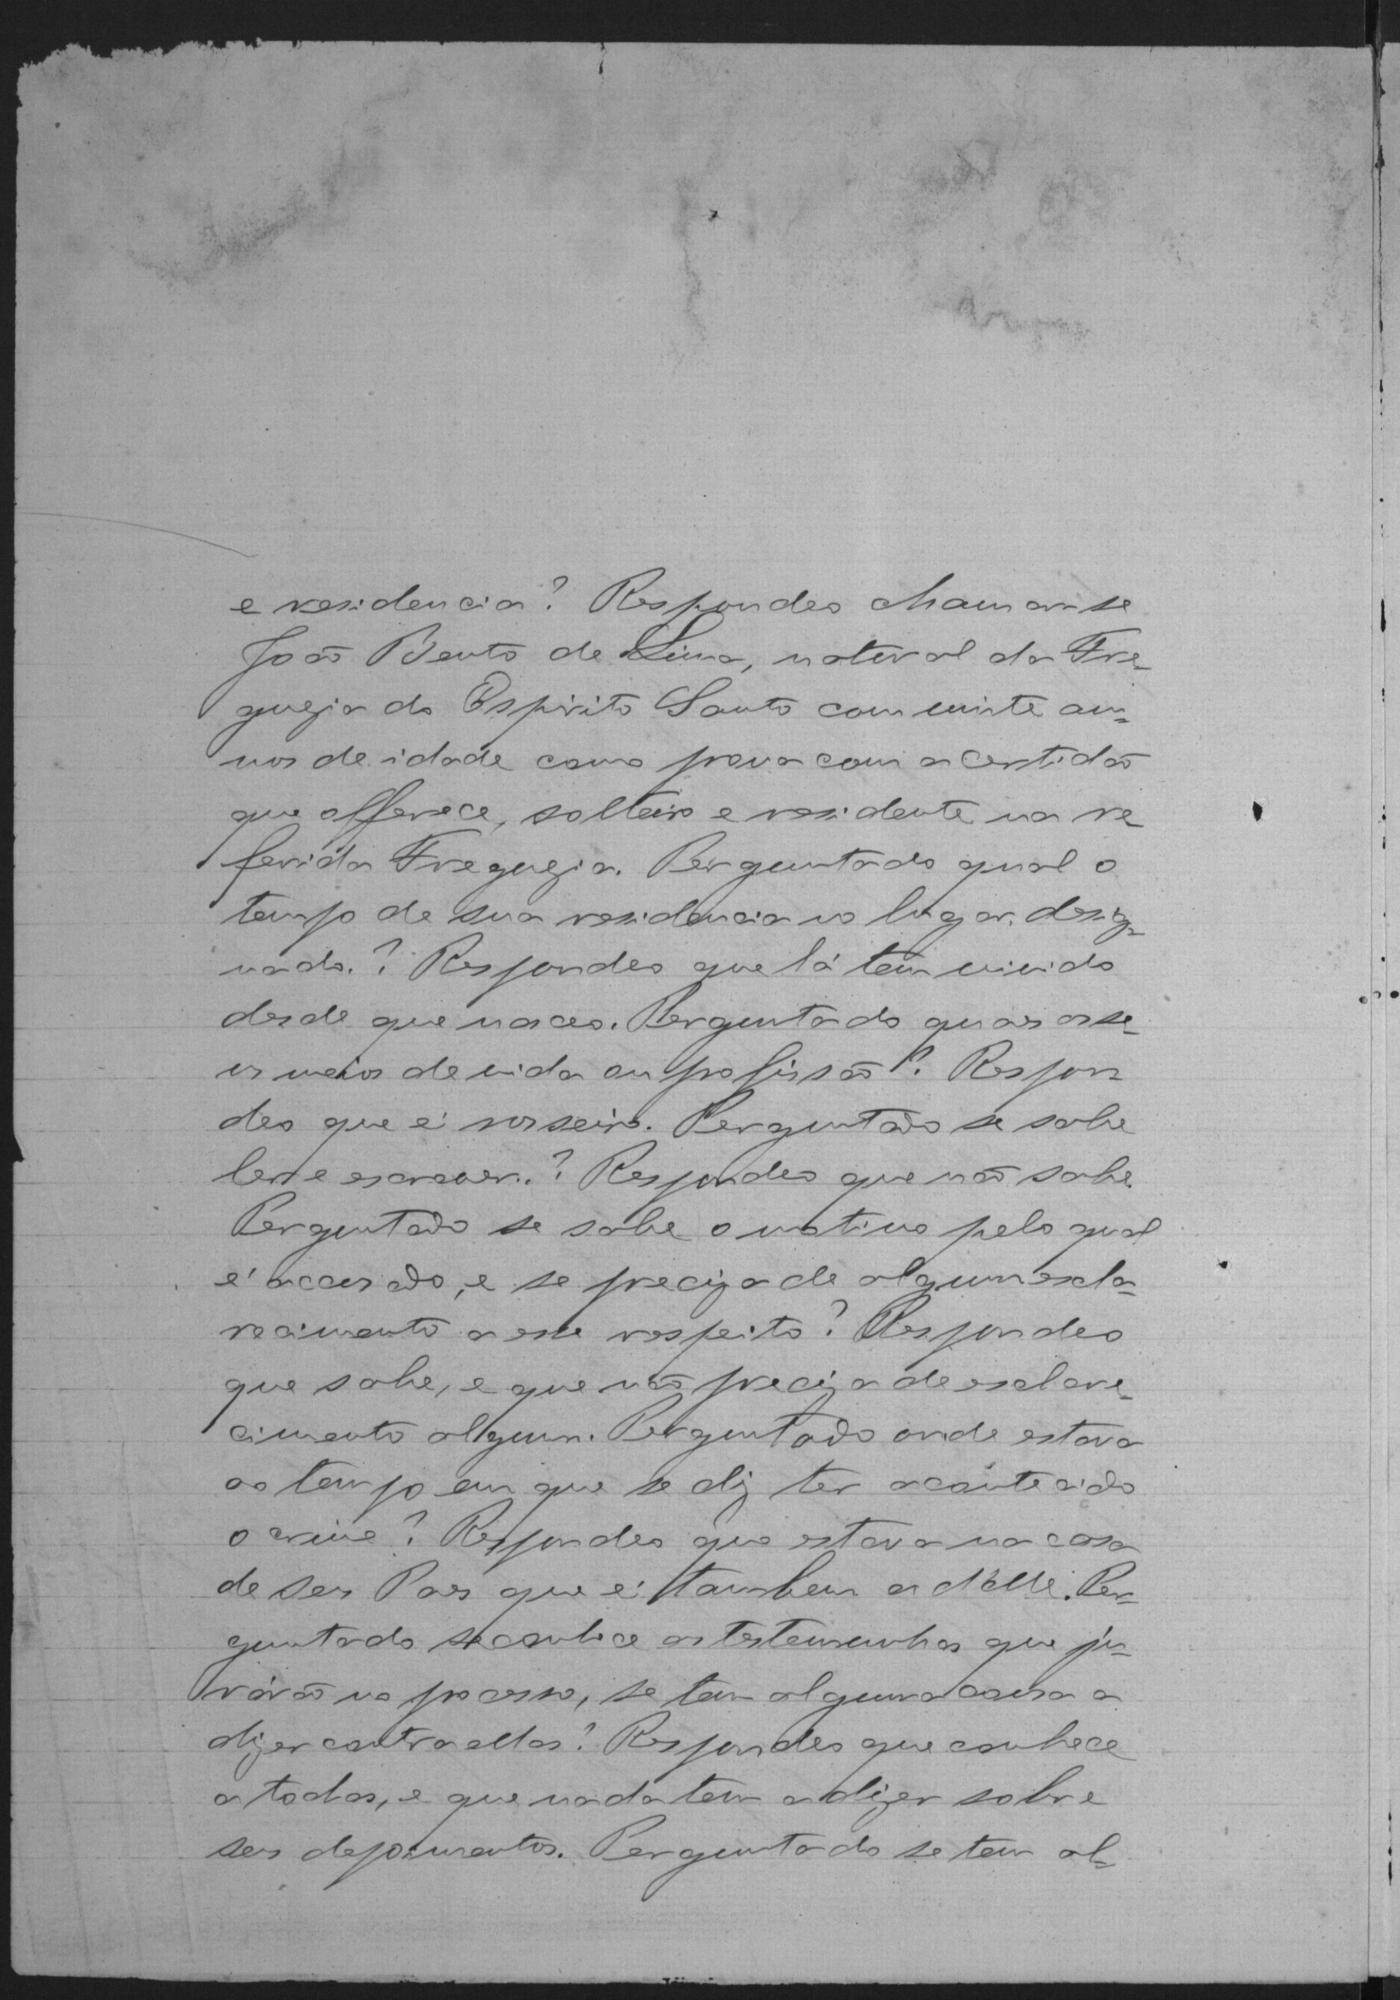 e residencia? Respondeo chamar se
João Bento de Lima, natural da Fre-
guezia do Espirito Santo com vinte an-
nos de idade como prova com a certidão
que offerece, solteiro e residente na re-
ferida Freguezia. Perguntado qual o
tempo de sua residencia no lugar desig-
nado.? Respondeo que lá tem vivido
desde que nasceo. Perguntado quaes os se-
us meios de vida ou profissão? Respon
deo que é rosseiro. Perguntado se sabe
ler e escrever.? Respondeo que não sabe.
Perguntado se sabe o motivo pelo qual
é accusado, e se preciza de algum escla-
recimento a esse respeito? Respondeo
que sabe, e que não preciza de esclare-
cimento algum. Perguntado onde estava
ao tempo em que se diz ter acontecido
o crime? Respondeo que estava na casa
de seu Pae que é tambem a d'elle. Per-
guntado se conhece as testemunhas que ju-
rárão no processo, se tem alguma cousa a
dizer contra ellas? Respondeo que conhece
a todas, e que nada tem a dizer sobre
seus depoimentos. Perguntado se tem al-